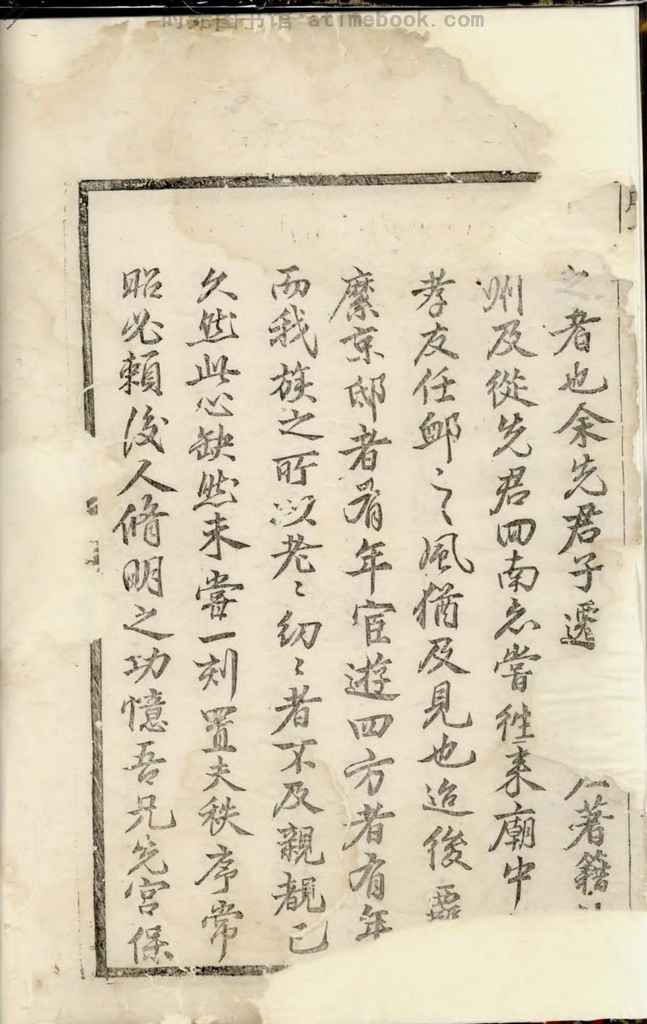 时光图书馆 atimebook.com
之者也余先君子遷 人著籍
州及從先君回南亦嘗往來廟中
孝友任䘏之風猶及見也迨後羈
縻京邸者有年宦遊四方者有年
而我族之所以老〻幼〻者不及親覩已
久然此心缺然未嘗一刻置夫秩序常
昭必賴後人脩明之功憶吾兄先宮保